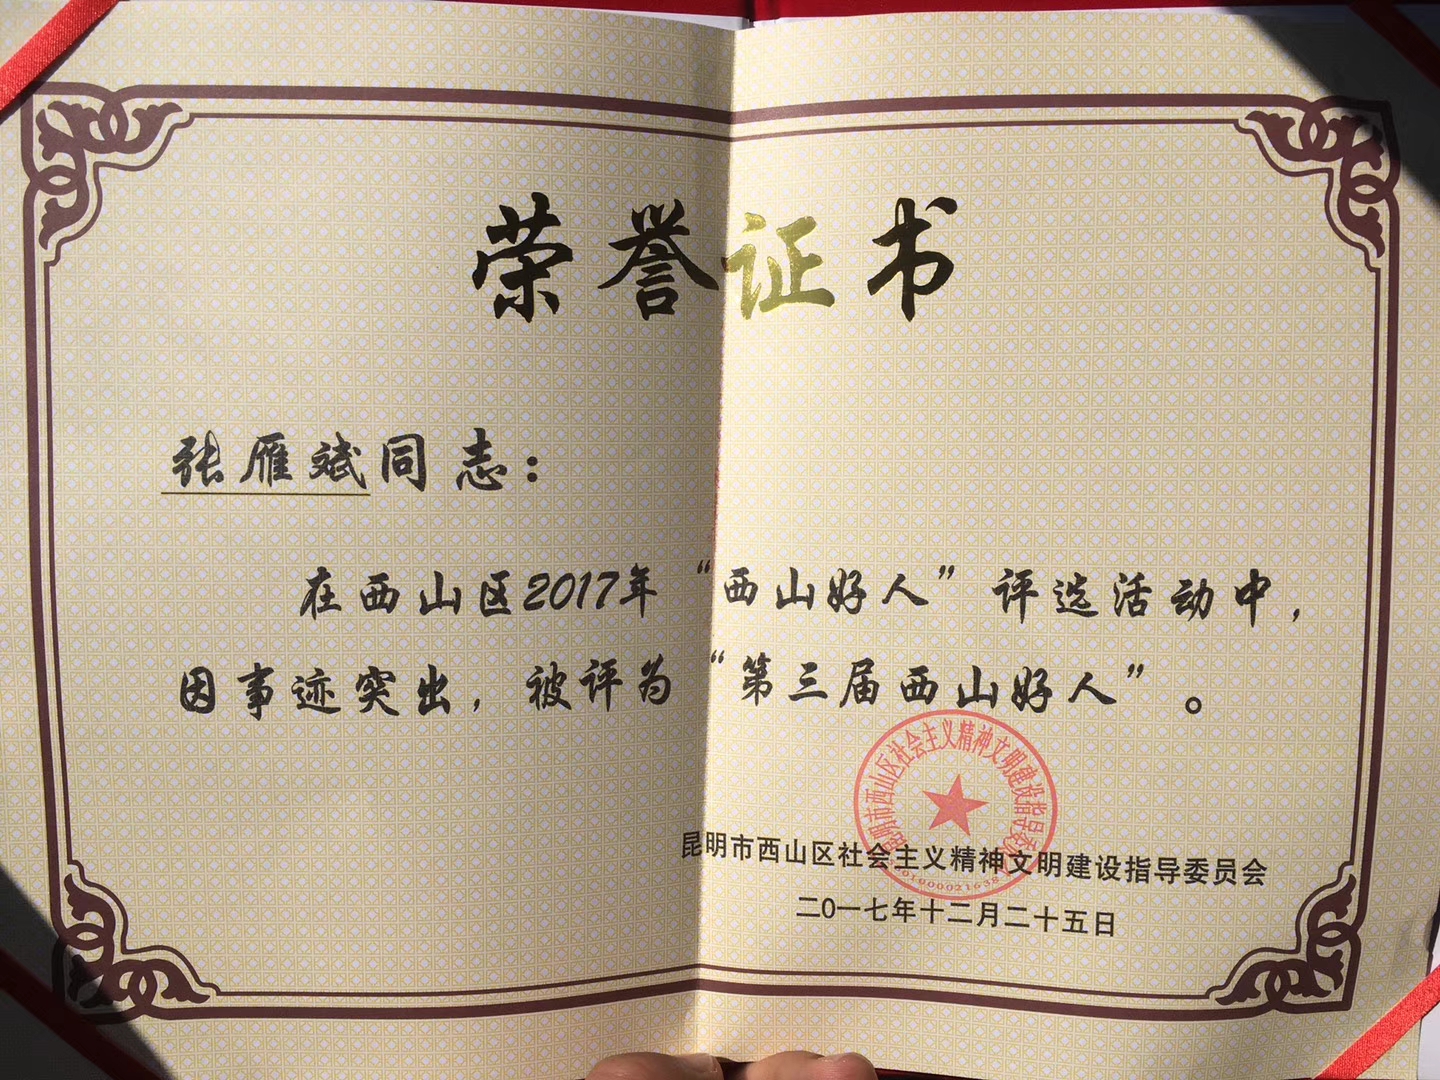 荣誉证书
张雁斌同志：
在西山区2017年“西山好人”评选活动中，
因事迹突出，被评为“第三届西山好人”。
昆明市西山区社会主义精神文明建设指导委员会
昆明市西山区社会主义精神文明建设指导委员会
二〇一七年十二月二十五日